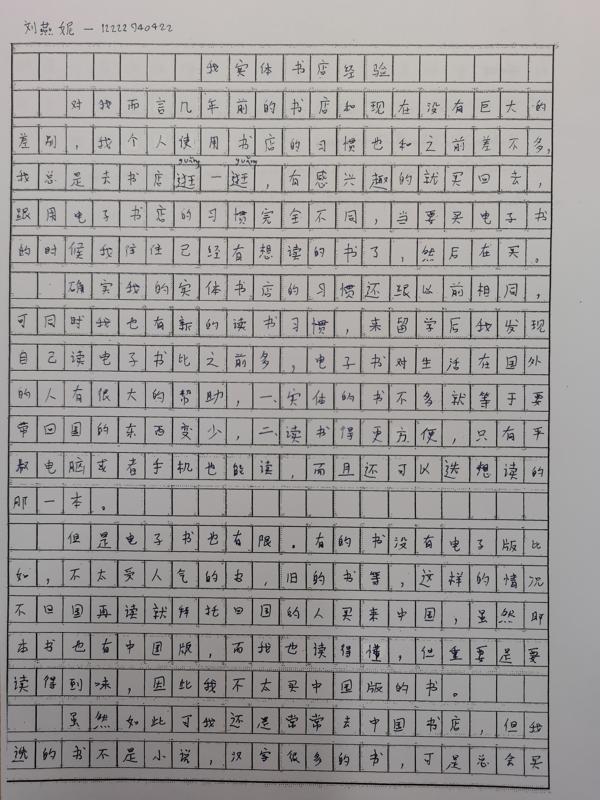 刘燕妮 — 12222940422
我实体书店经验
对我而言几年前的书店和现在没有巨大的
差别，我个人使用书店的习惯也和之前差不多，
guàng guàng
我总是去书店逛一逛，有感兴趣的就买回去，
跟用电子书店的习惯完全不同，当要买电子书
的时候我往往已经有想读的书了，然后在买。
确实我的实体书店的习惯还跟以前相同，
可同时我也有新的读书习惯，来留学后我发现
自己读电子书比之前多，电子书对生活在国外
的人有很大的帮助，一、实体的书不多就等于要
带回国的东西变少，二、读书得更方便，只有手
电脑或者手机也能读，而且还可以选想读的
那一本。
但是电子书也有限。有的书没有电子版比
如，不太受人气的书，旧的书等，这样的情况
不回国再读就拜托回国的人买来中国，虽然那
本书也有中国版，而我也读得懂，但重要是要
读得到味，因此我不太买中国版的书。
虽然如此可我还是常常去中国书店，但我
选的书不是小说，汉字很多的书，可是总会买